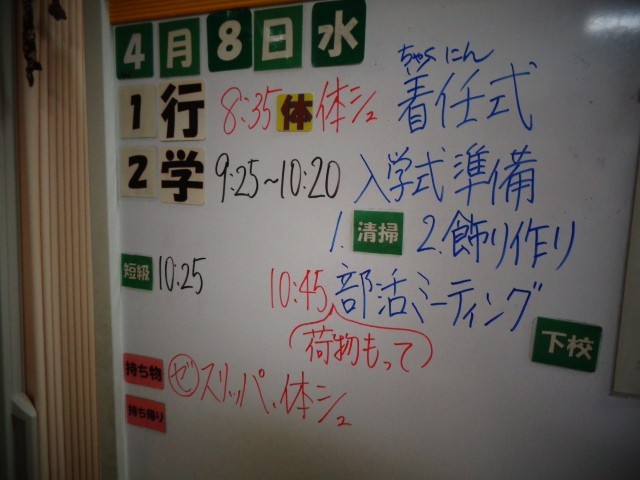 4月8日水
1行 8:35 体 体シュ 着任式 ちゃくにん
2学 9:25~10:20 入学式準備
1. 清掃 2. 飾り作り
短級 10:25 10:45 部活ミーティング
(荷物もって)
下校
持ち物 ゼ スリッパ、体シュ
持ち帰り